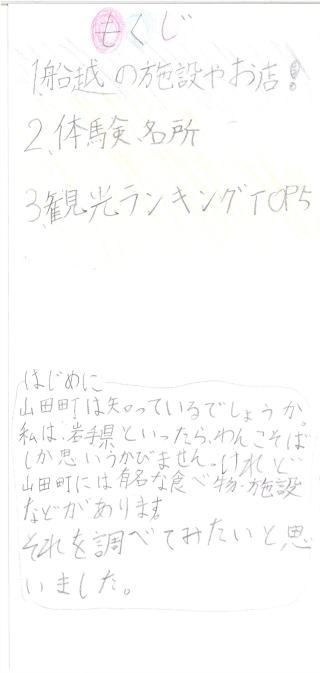 もくじ
1.船越の施設やお店!
2、体験名所
3、観光ランキングTOP5
はじめに
山田町は知っているでしょうか。
私は、岩手県といったら、わんこそば
しか思いうかびません。けれど
山田町には有名な食べ物・施設
などがあります。
それを調べてみたいと思
いました。